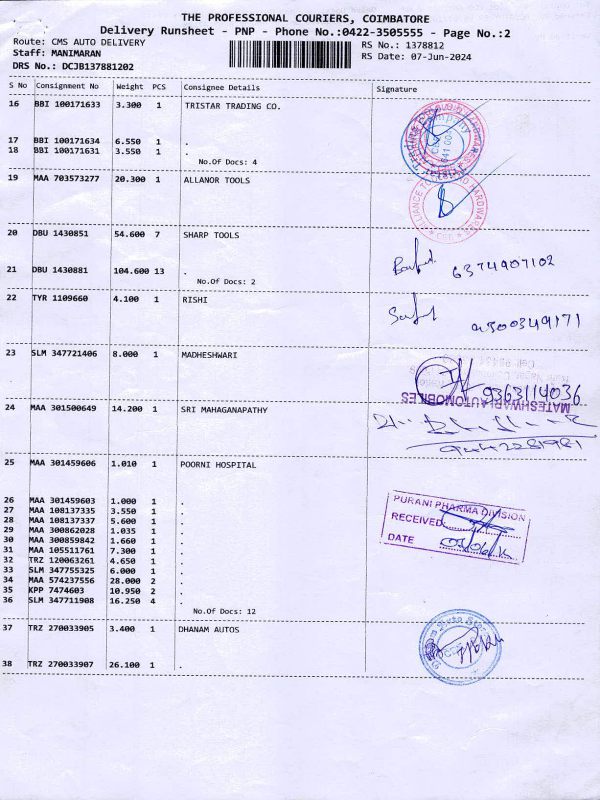 THE PROFESSIONAL COURIERS, COIMBATORE
Delivery Runsheet - PNP - Phone No.:0422-3505555 - Page No.:2
Route: CMS AUTO DELIVERY
RS No.: 1378812
Staff: MANIMARAN
RS Date: 07-Jun-2024
DRS No.: DCJB137881202
S No Consignment No Weight PCS Consignee Details Signature
16 BBI 100171633 3.300 1 TRISTAR TRADING CO.
17 BBI 100171634 6.550 1 .
18 BBI 100171631 3.550 1 .
No.Of Docs: 4
19 MAA 703573277 20.300 1 ALLANOR TOOLS
20 DBU 1430851 54.600 7 SHARP TOOLS
6374907102
21 DBU 1430881 104.600 13 .
No.Of Docs: 2
22 TYR 1109660 4.100 1 RISHI
9500349171
23 SLM 347721406 8.000 1 MADHESHWARI
9363114036
MATESHWARI AUTOMOBILES
24 MAA 301500649 14.200 1 SRI MAHAGANAPATHY
25 MAA 301459606 1.010 1 POORNI HOSPITAL
PURANI PHARMA DIVISION
RECEIVED:
DATE
26 MAA 301459603 1.000 1 .
27 MAA 108137335 3.550 1 .
28 MAA 108137337 5.600 1 .
29 MAA 300862028 1.035 1 .
30 MAA 300859842 1.660 1 .
31 MAA 105511761 7.300 1 .
32 TRZ 120063261 4.650 1 .
33 SLM 347755325 6.000 1 .
34 MAA 574237556 28.000 2 .
35 KPP 7474603 10.950 2 .
36 SLM 347711908 16.250 4 .
No.Of Docs: 12
37 TRZ 270033905 3.400 1 DHANAM AUTOS
38 TRZ 270033907 26.100 1 .